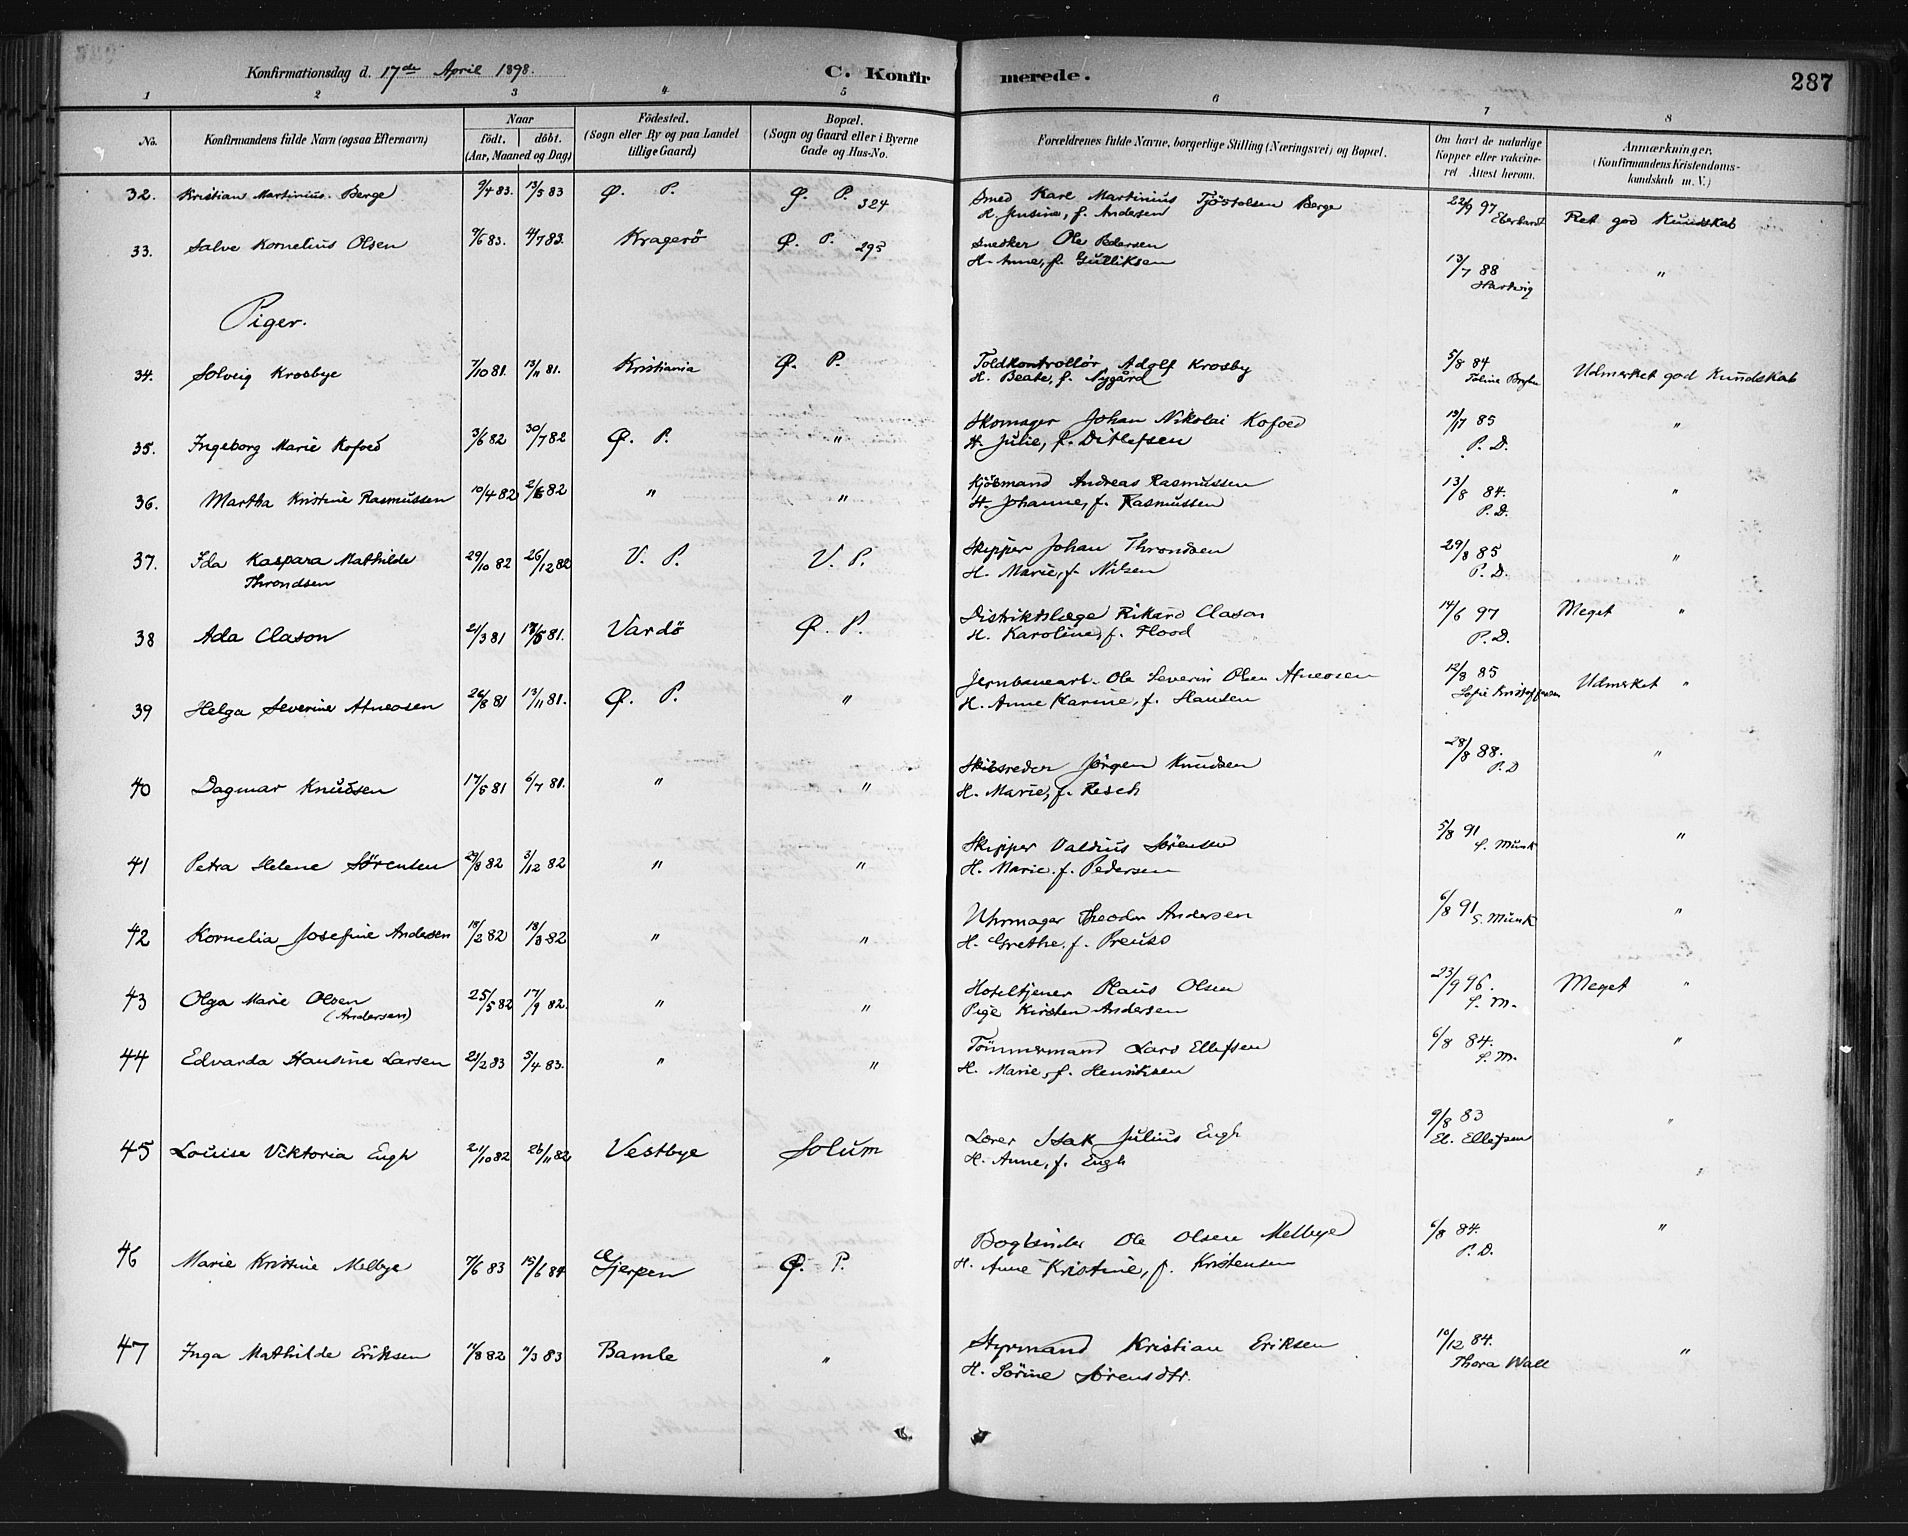 Konfirmationsdag d. 17de April 1898.
C. Konfir
merede.
287
1 2 3 4 5 6 7 8
No.
Konfirmandens fulde Navn (ogsaa Efternavn)
Naar
født. døbt.
(Aar, Maaned og Dag)
Fødested.
(Sogn eller By og paa Landet
tillige Gaard)
Bopæl.
(Sogn og Gaard eller i Byerne
Gade og Hus-No.
Forældrenes fulde Navne, borgerlige Stilling (Næringsvei) og Bopæl.
Om havt de naturlige
Kopper eller vakcine-
ret Attest herom.
Anmærkninger,
(Konfirmandens Kristendoms-
kundskab m. V.)
32. Kristian Martinius Berge 9/4 83. 13/5 83 Ø. P. Ø. P. 324 Smed Karl Martinius Tjöstolsen Berge 22/9 97 Ret god Kundskab
H. Jensine, f. Andersen Eberhardt
33. Salve Kornelius Olsen 9/5 83. 4/7 83. Kragerö Ø. P. 295 Snedker Ole Pedersen
H. Anne, f. Gulliksen 13/7 88 "
Hartwig
Piger.
34. Solveig Krosbye 7/10 81. 13/11 81. Kristiania Ø. P. Toldkontrollör Adolf Krosby 5/8 84 Udmerket god Kundskab
H. Beate, f. Nygård
35. Ingeborg Marie Kofoed 3/6 82 30/7 82 Ø. P. " Skomager Johan Nikolai Kofoed 13/7 85 "
H. Julie, f. Ditlefsen P. D.
36. Martha Kristine Rasmussen 10/4 82 2/6 82 " " Kjösmand Andreas Rasmussen 13/8 84. "
H. Johanne, f. Rasmussen P. D.
37. Ida Kaspara Mathilde 29/10 82 26/12 82 V. P. V. P. Skipper Johan Throndsen 29/8 85 "
Throndsen H. Marie, f. Nilsen P. D.
38 Ada Clason 21/3 81 18/5 81. Vardö Ø. P. Distriktslæge Rikard Clason 14/6 97 Meget "
H. Karoline, f. Flood P. D.
39 Helga Severine Atneosen 26/8 81 13/11 81. Ø. P. " Jernbanearb. Ole Severin Olsen Atneosen 12/8 85 Udmerket "
H. Anne Karine, f. Hansen Sofie Kristoffersen
40 Dagmar Knudsen 17/5 81 6/7 81. " " Skibsreder Jørgen Knudsen 28/8 88. "
H. Marie, f. Resch P. D
41 Petra Helene Sørensen 29/8 82 3/12 82 " " Skipper Valdius Sørensen 5/8 91 "
H. Marie. f. Pedersen S. Munk
42 Kornelia Josefine Andersen 13/2 82 18/3 82 " " Uhrmager Theodor Andersen 6/8 91 "
H. Grethe, f. Preuss S. Munk
43 Olga Marie Olsen 25/5 82 17/9 82. " " Hoteltjener Klaus Olsen 23/9 96. Meget "
(Andersen) Pige Kirsten Andersen S. M.
44 Edvarda Hansine Larsen 21/2 83 5/4 83. " " Tömmermand Lars Ellefsen 6/8 84. "
H. Marie, f. Henriksen S. M.
45 Louise Viktoria Engh 21/10 82 26/11 82 Vestbye Solum Lærer Isak Julius Engh 9/8 83 "
H. Anne, f. Engh El. Ellefsen
46 Marie Kristine Melbye 7/6 83 15/6 84 Gjerpen Ø. P. Bogbinder Ole Olsen Melbye 6/8 84. "
H. Anne Kristine, f. Kristensen P. D.
47 Inga Mathilde Eriksen 11/8 82 11/3 83 Bamle " Styrmand Kristian Eriksen 10/12 84. "
H. Sörine Sørensdtr. Thora Wall